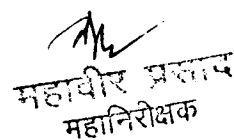 महावीर प्रसाद
महानिरीक्षक